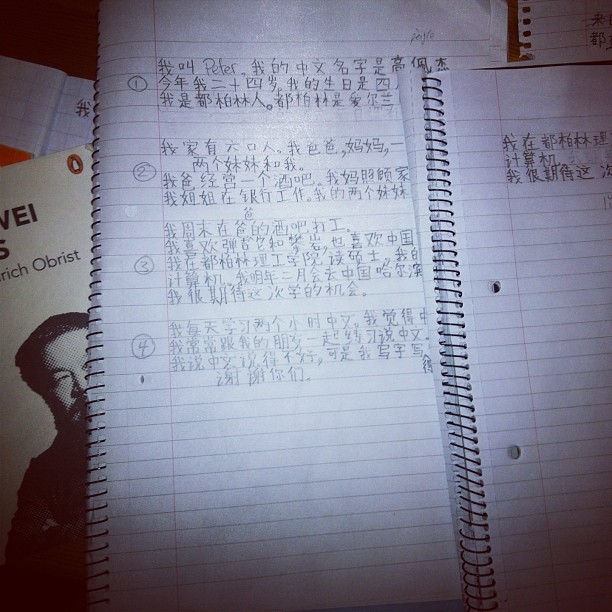 people
我叫 Peter。我的中文名字是高佩杰
① 今年我二十四岁。我的生日是四
我是都柏林人。都柏林是爱尔兰
我家有六口人。我爸爸,妈妈,一
② 两个妹妹和我。
我爸经营一个酒吧。我妈照顾家
我姐姐在银行工作。我的两个妹妹
爸
我周末在爸的酒吧打工。
我喜欢弹吉他和攀岩。也喜欢中国
③ 我在都柏林理工学院读硕士。我的
计算机。我明年二月会去中国哈尔滨
我很期待这次学的机会。
我每天学习两个小时中文。我觉得中
④ 我常常跟我的朋友一起练习说中文。
我说中文说得不好,可是我写字写得
谢谢你们。
我在都柏林理
计算机。
我很期待这次
我
都
WEI
S
rich Obrist